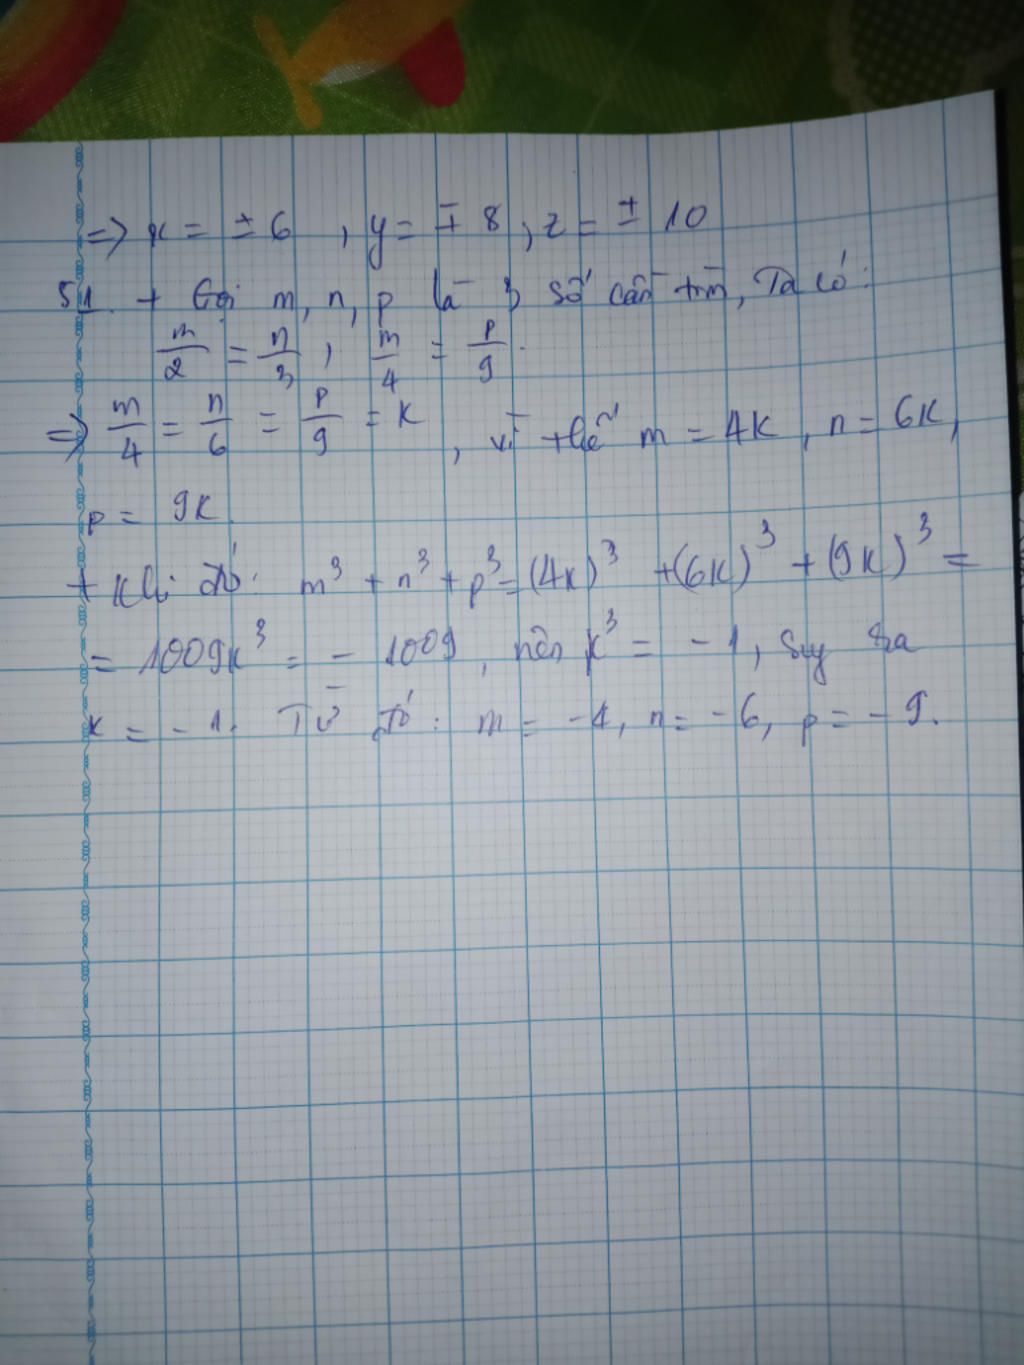 => x = ± 6 , y = ∓ 8 , z = ± 10
51. + Gọi m, n, p là 3 số cần tìm, Ta có:
m/2 = n/3 ; m/4 = p/9.
=> m/4 = n/6 = p/9 = k , vì thế m = 4k , n = 6k ,
p = 9k.
+ Khi đó: m³ + n³ + p³ = (4k)³ + (6k)³ + (9k)³ =
= 1009k³ = - 1009 , nên k³ = - 1 , suy ra
k = - 1. Từ đó : m = -4, n = -6, p = -9.